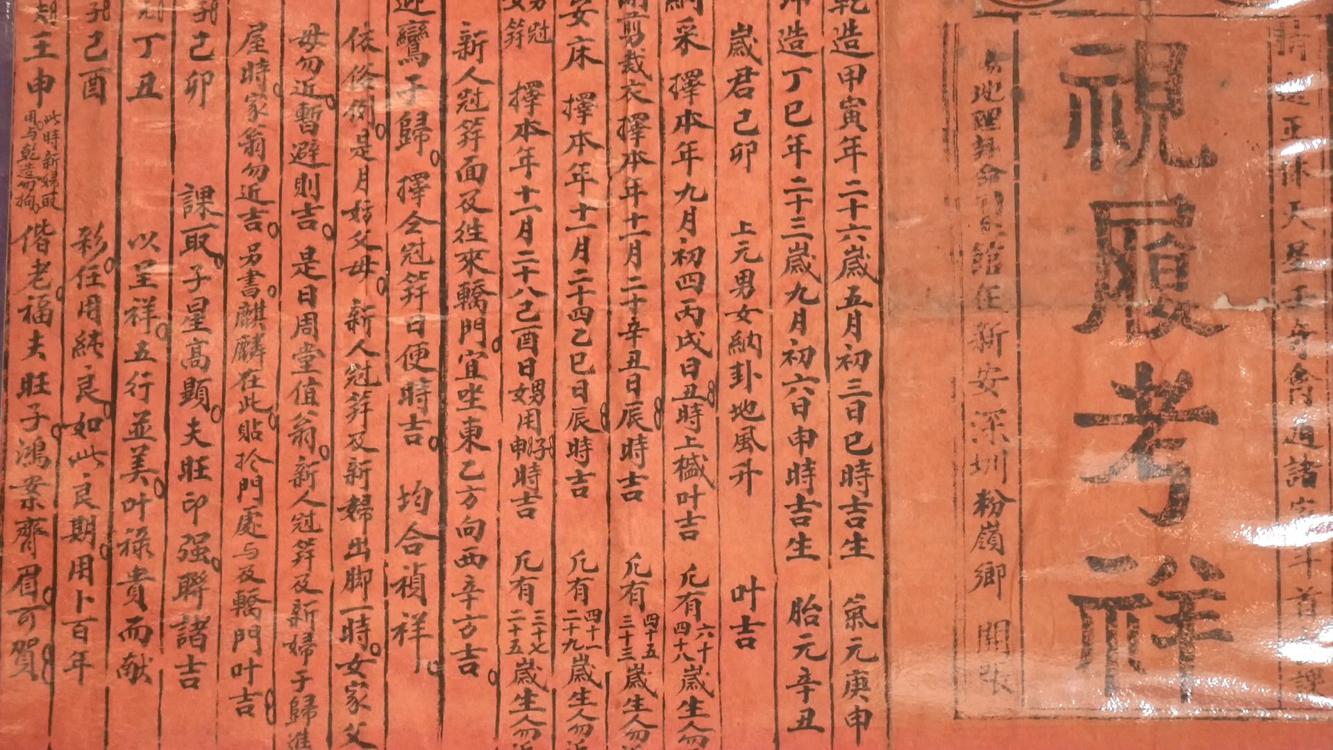 正体天星
諸家
視履考祥
館在新安深圳粉嶺鄉 開張
乾造甲寅年二十六歲五月初三日巳時吉生 氣元庚申
造丁巳年二十三歲九月初六日申時吉生 胎元辛丑
歲君己卯 上元男女納卦地風升 叶吉
納采 擇本年九月初四丙戌日丑時上槛叶吉 凡有六十四十八歲生人勿
剪裁衣 擇本年十一月二十辛丑日辰時吉 凡有四十五三十三歲生人勿近
安床 擇本年十一月二十四乙巳日辰時吉 凡有四十一二十九歲生人勿近
男冠女笄 擇本年十一月二十八己酉日男用女用申時吉 凡有三十七二十五歲生人勿近
新人冠笄面及往來轎門宜坐東乙方向西辛方吉
迎鸞子歸 擇仝冠笄日便時吉 均合禎祥
依俗例是月妨父母 新人冠笄及新婦出腳一時女家父
母勿近暫避則吉 是日周堂值翁新人冠笄及新婦子歸進
屋時家翁勿近吉 另書麒麟在此貼於門處与及轎門叶吉
課取子星高顯夫旺印强聯諸吉
己卯
丁丑 以呈祥五行並美叶祿貴而献
己酉 彩任用純良如此良期用卜百年
壬申 此時新婦取用与乾造勿拘 偕老福夫旺子鴻案齊眉可賀